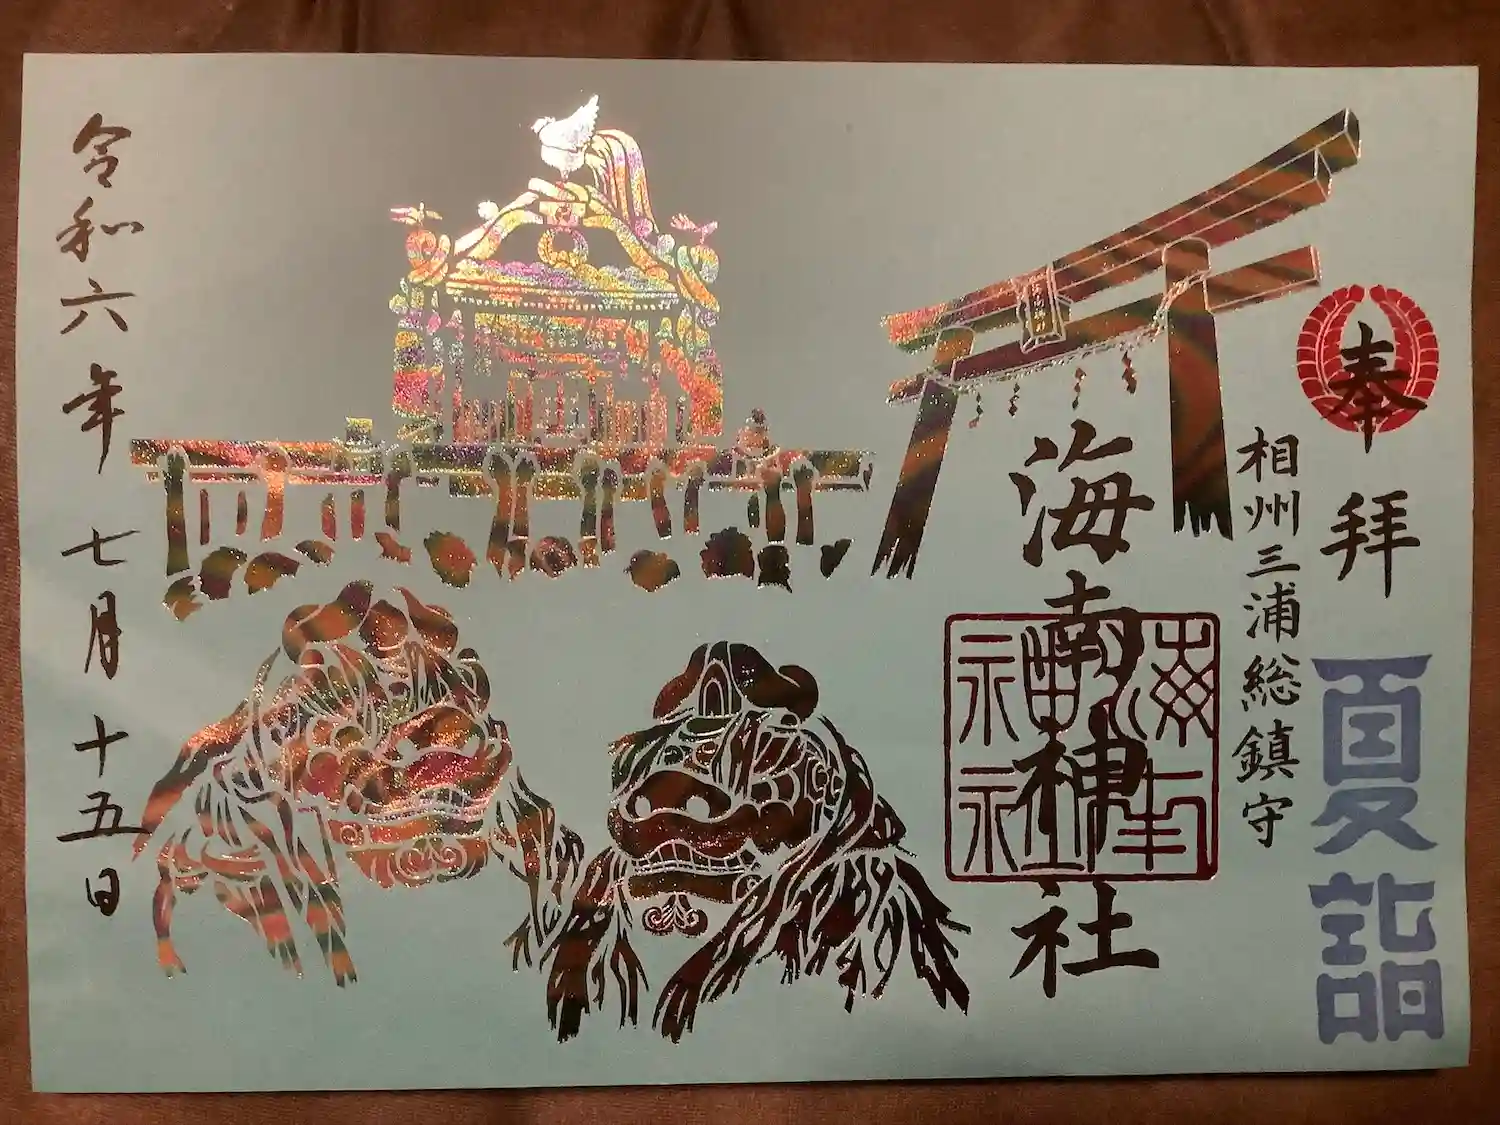 奉拝
夏詣
相州三浦総鎮守
海南神社
海南神社
令和六年七月十五日